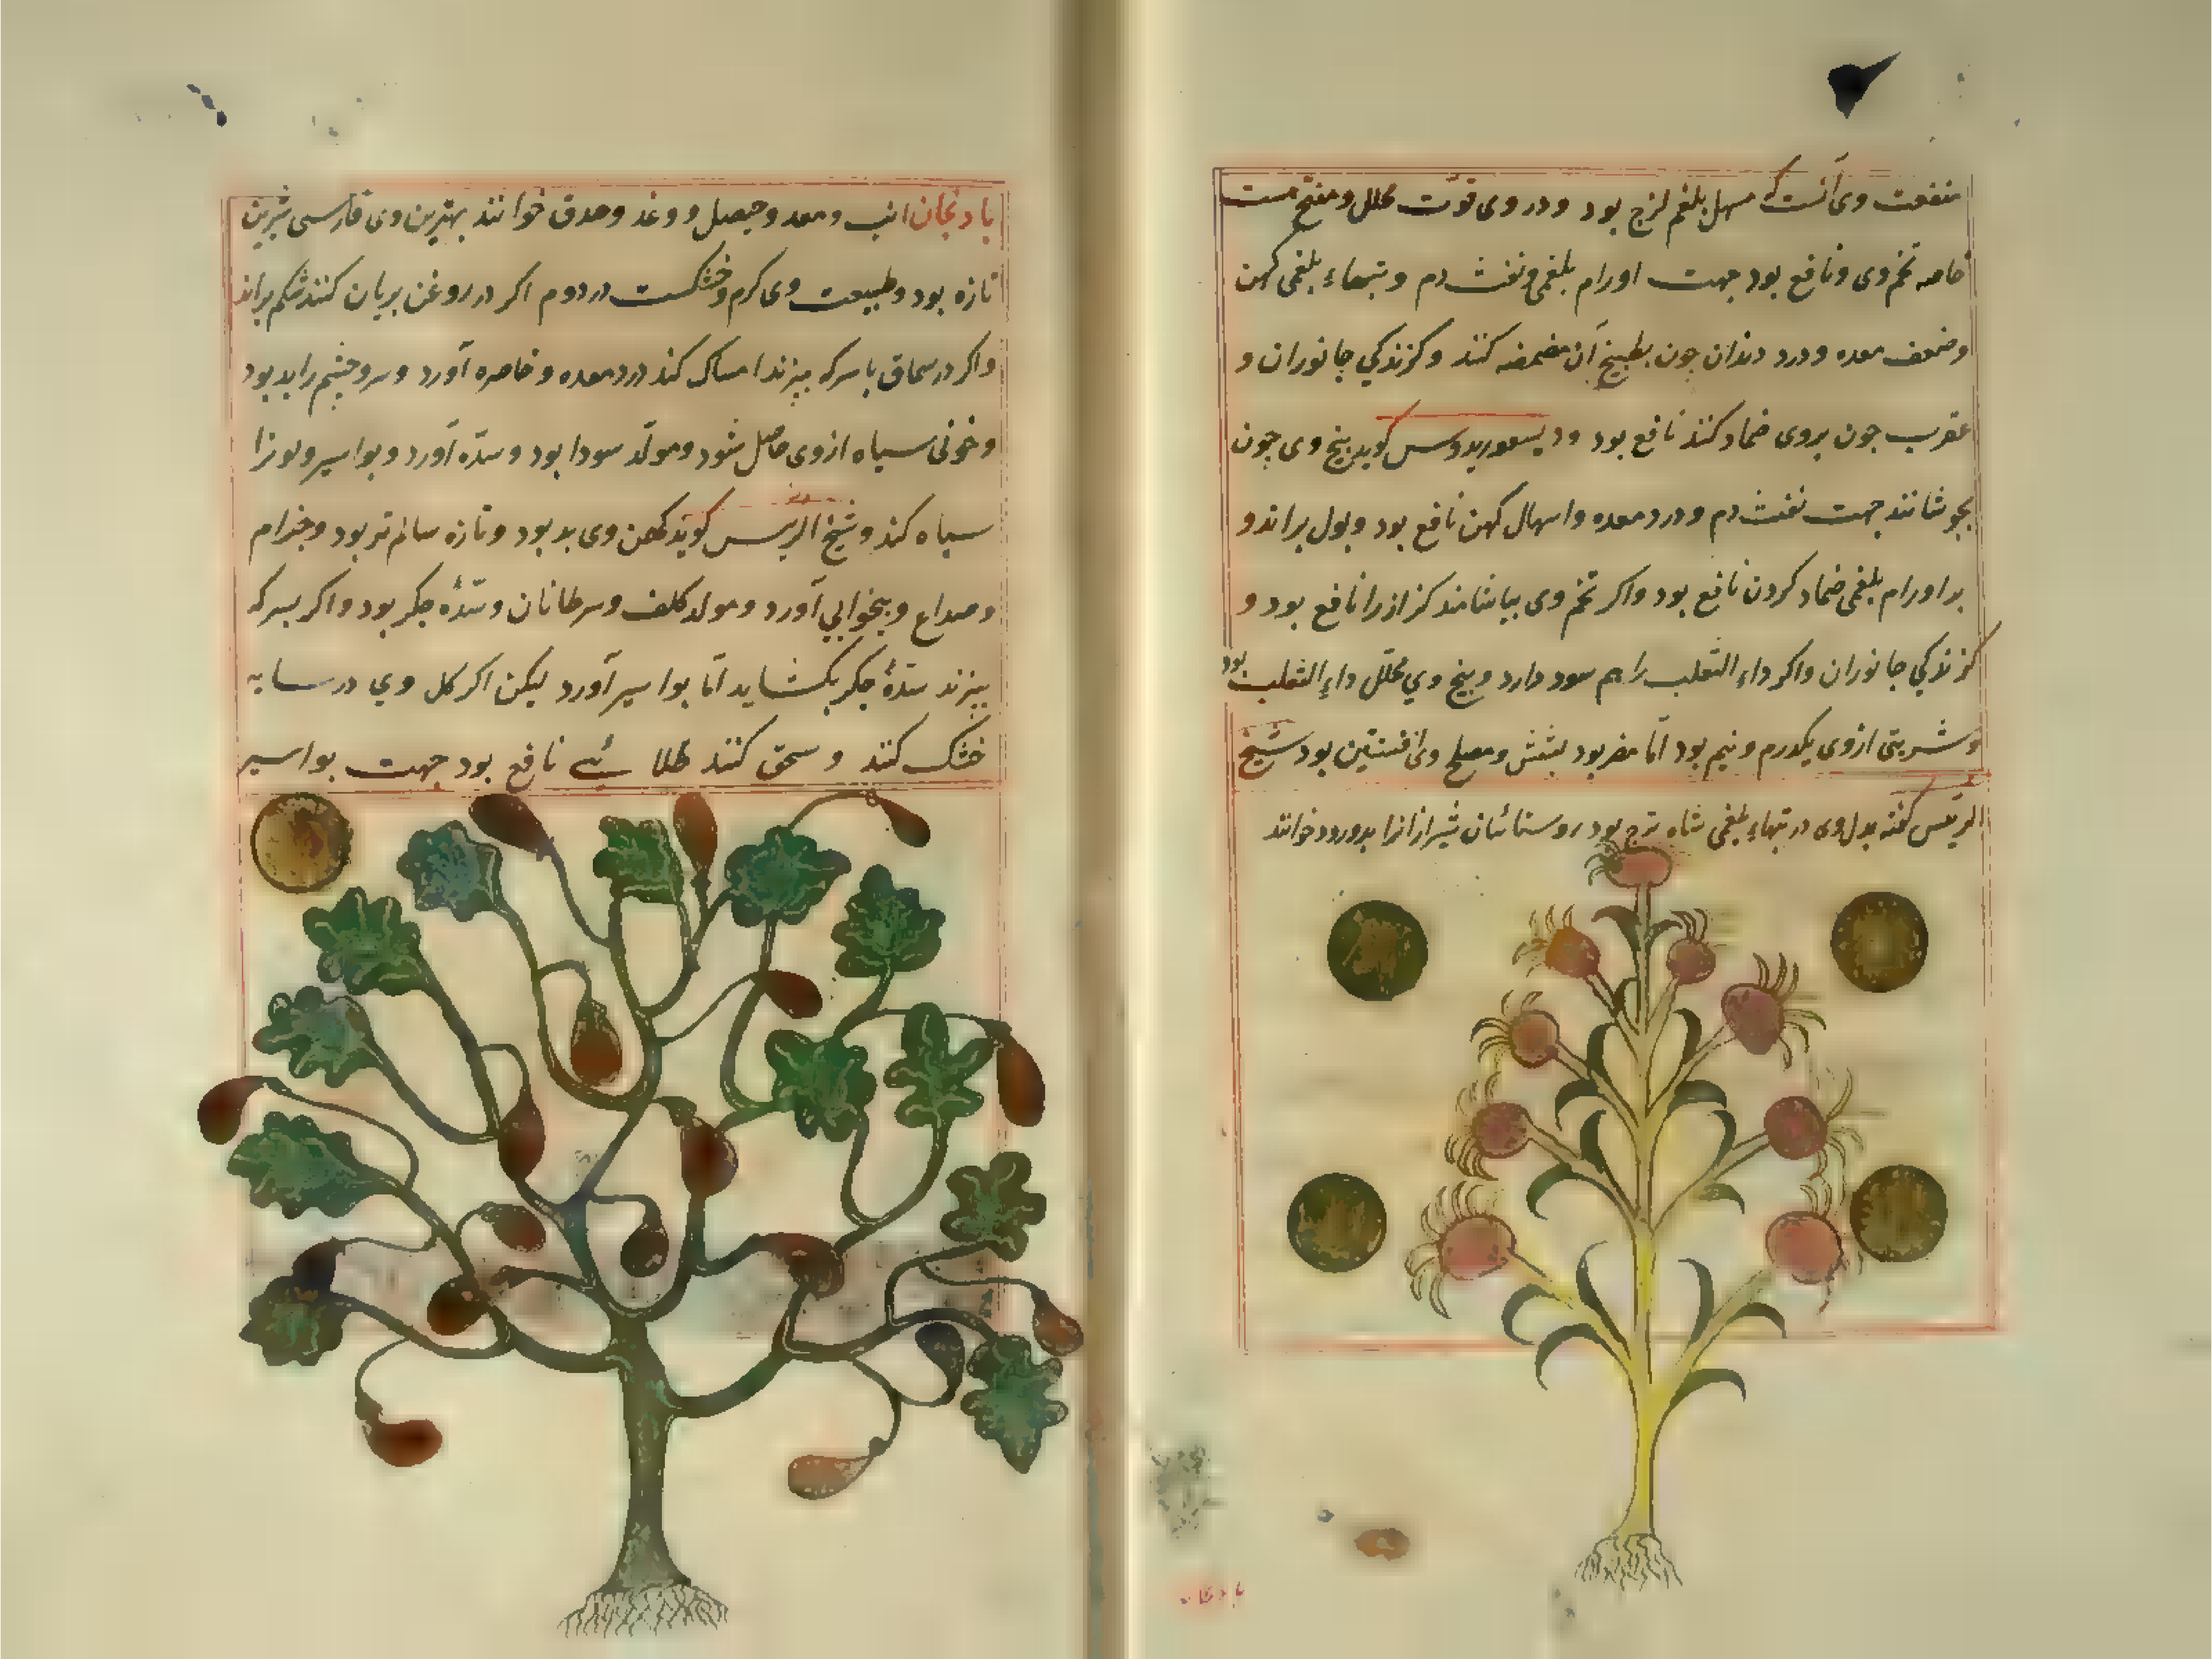 منفعت وی آنست که مسهل بلغم لزج بود و در وی قوّت محلل و مفتح هست
خاصه تخم وی و نافع بود جهت اورام بلغمی و نفث دم و تبهاء بلغمی کهن
وضعف معده و درد دندان چون بطبیخ آن مضمضه کنند و کزندکی جانوران و
عقرب چون بروی ضماد کنند نافع بود و دیسقوریدوس کوید بیخ وی چون
بجوشانند جهت نفث دم و درد معده و اسهال کهن نافع بود و بول براند و
بر اورام بلغمی ضماد کردن نافع بود و اکر تخم وی بیاشامند کزاز را نافع بود و
کزندکی جانوران و اکر داء الثعلب را هم سود دارد و بیخ وی محلّل داء الثعلب بود
و شربتی از وی یکدرم و نیم بود امّا مضر بود بشش و مصلح وی افسنتین بود شیخ
الرئیس کفته بدل وی در تبهاء بلغمی شاه ترج بود روستائیان شیراز انرا خوانند
بادنجان
بادنجان انب و معد و حیصل و وغد و حدق خوانند بهترین وی فارسی شیرین
تازه بود و طبیعت وی کرم و خشکست در دوم اکر در روغن بریان کنند شکم براند
و اکر در سماق با سرکه بپزند امساک کند درد معده و خاصره آورد و سر و چشم را بد بود
و خونی سیاه از وی حاصل شود و مولّد سودا بود و سدّه آورد و بواسیر و لون را
سیاه کند و شیخ الرئیس کوید کهن وی بد بود و تازه سالم تر بود و جذام
و صداع و بیخوابی آورد و مولد کلف و سرطانان و سدّهٔ جکر بود و اکر بسرکه
بپزند سدّهٔ جکر بکشاید امّا بواسیر آورد لیکن اکر کل وی در سایه
خشک کنند و سحق کنند طلا نافع بود جهت بواسیر